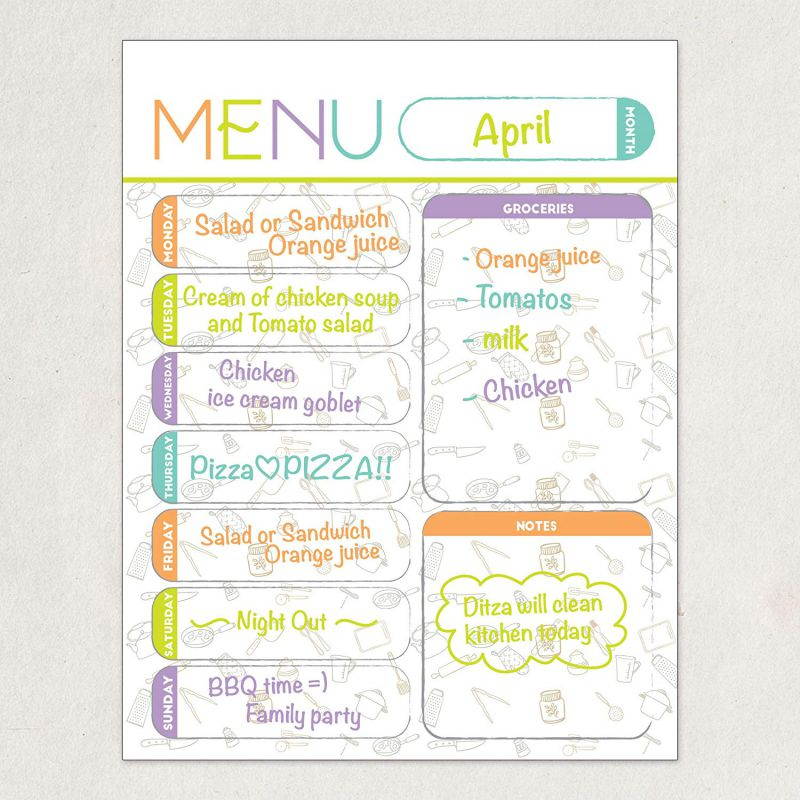 MENU
April
MONTH
MONDAY
Salad or Sandwich
Orange juice
TUESDAY
Cream of chicken soup
and Tomato salad
WEDNESDAY
Chicken
ice cream goblet
THURSDAY
Pizza♡PIZZA!!
FRIDAY
Salad or Sandwich
Orange juice
SATURDAY
~ Night Out ~
SUNDAY
BBQ time =)
Family party
GROCERIES
- Orange juice
- Tomatos
- milk
- Chicken
NOTES
Ditza will clean
kitchen today